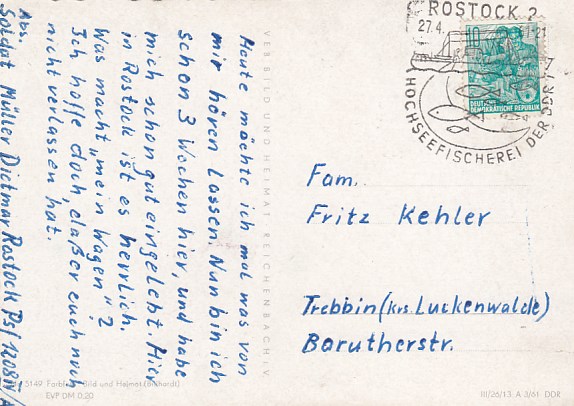 Heute möchte ich mal was von
mir hören lassen. Nun bin ich
schon 3 Wochen hier, und habe
mich schon gut eingelebt. Hier
in Rostock ist es herrlich.
Was macht "mein Wagen"?
Ich hoffe doch, daß er euch noch
nicht verlassen hat.
Abs.
Soldat Müller Dietmar Rostock Psf 1208
VEB BILD UND HEIMAT REICHENBACH I. V.
ROSTOCK 2
27.4. -21
HOCHSEEFISCHEREI DER DDR
10
DEUTSCHE
DEMOKRATISCHE REPUBLIK
Fam.
Fritz Kehler
Trebbin (Krs. Luckenwalde)
Barutherstr.
5149 Bild und Heimat
EVP DM 0,20
III/26/13 A 3/61 DDR